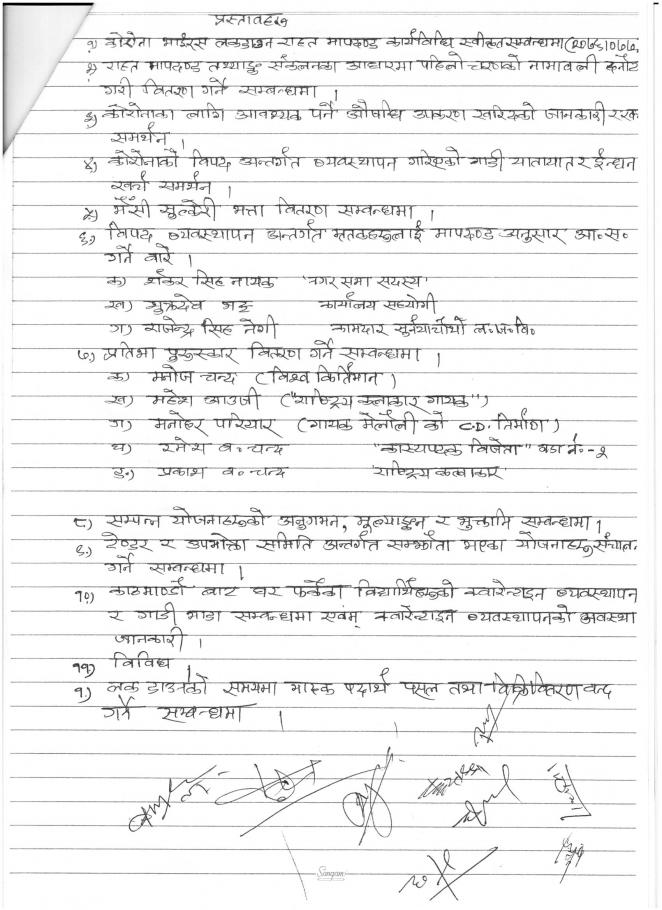 प्रस्तावहरु
१) कोरोना भाईरस लकडाउन राहत मापदण्ड कार्यविधि स्वीकृत सम्बन्धमा (2076|077)
२) राहत मापदण्ड तथ्याङ्क संकलनका आधारमा पहिलो चरणको नामावली कर्नोट
गरी वितरण गर्ने सम्बन्धमा ।
३) कोरोनाका लागि आवश्यक पर्ने औषधि उपकरण खरिदको जानकारी र रकम
समर्थन ।
४) कोरोनाको विपद अन्तर्गत व्यवस्थापन गरिएको गाडी यातायात र ईन्धन
खर्च समर्थन ।
५) भैंसी सुत्केरी भत्ता वितरण सम्बन्धमा ।
६) विपद व्यवस्थापन अन्तर्गत मृतकहरुलाई मापदण्ड अनुसार आ॰स॰
गर्ने बारे ।
क) शंकर सिंह नायक 'नगर सभा सदस्य'
ख) शुक्रदेव भट्ट कार्यालय सहयोगी
ग) राजेन्द्र सिंह नेगी कामदार सुर्नयाचौधौ ल॰ज॰वि॰
७) प्रतिभा पुरुस्कार वितरण गर्ने सम्बन्धमा ।
क) मनोज चन्द (विश्व किर्तिमान)
ख) महेश आउजी ("राष्ट्रिय कलाकार गायक")
ग) मनोहर परियार (गायक मेलौली को C.D. निर्माण)
घ) रमेश ब॰ चन्द "कास्यपदक विजेता" वडा नं॰-२
ङ) प्रकाश ब॰ चन्द 'राष्ट्रिय कलाकार'
८) सम्पन्न योजनाहरुको अनुगमन, मूल्याङ्कन र भुक्तानि सम्बन्धमा ।
९) टेण्डर र उपभोक्ता समिति अन्तर्गत सम्झौता भएका योजनाहरु संचालन
गर्ने सम्बन्धमा ।
१०) काठमाण्डौ बाट घर फर्केका विद्यार्थिहरुको क्वारेन्टाइन व्यवस्थापन
र गाडी भाडा सम्बन्धमा एवंम् क्वारेन्टाइन व्यवस्थापनको अवस्था
जानकारी ।
११) विविध ।
१) लक डाउनको समयमा मादक पदार्थ पसल तथा बिक्रि वितरण बन्द
गर्ने सम्बन्धमा ।
Sangam